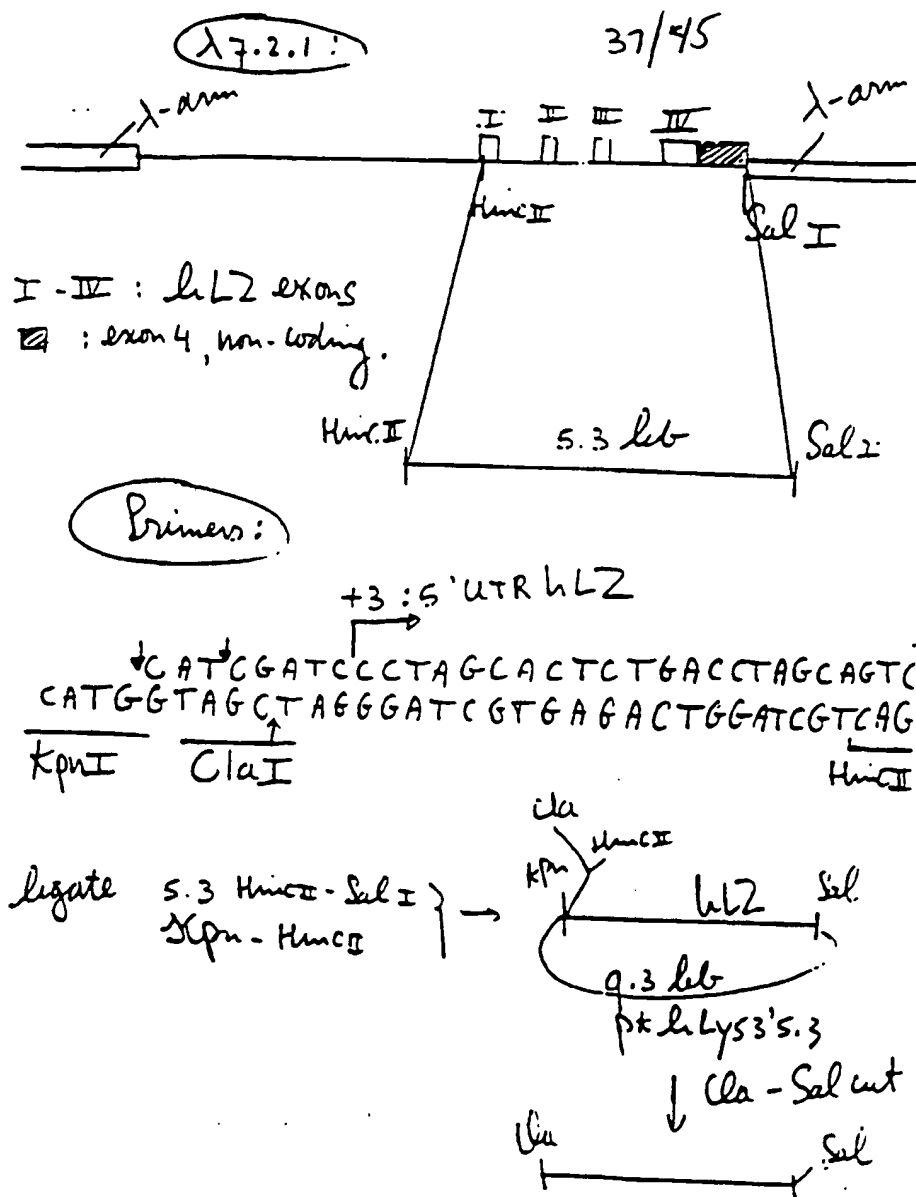 λ7.2.1 :
37/45
λ-arm
λ-arm
I II III IV
Hinc II
Sal I
I - IV : hLZ exons
: exon 4, non-coding.
Hinc.II
5.3 kb
Sal I
Primers:
+3 : 5' UTR hLZ
CATCGATCCCTAGCACTCTGACCTAGCAGTC
CATGGTAGCTAGGGATCGTGAGACTGGATCGTCAG
KpnI ClaI HincII
Cla
HincII
ligate 5.3 HincII-Sal I } → Kpn hLZ Sal.
Kpn - HincII
9.3 kb
hLys3'5.3
↓ Cla - Sal cut
Cla Sal